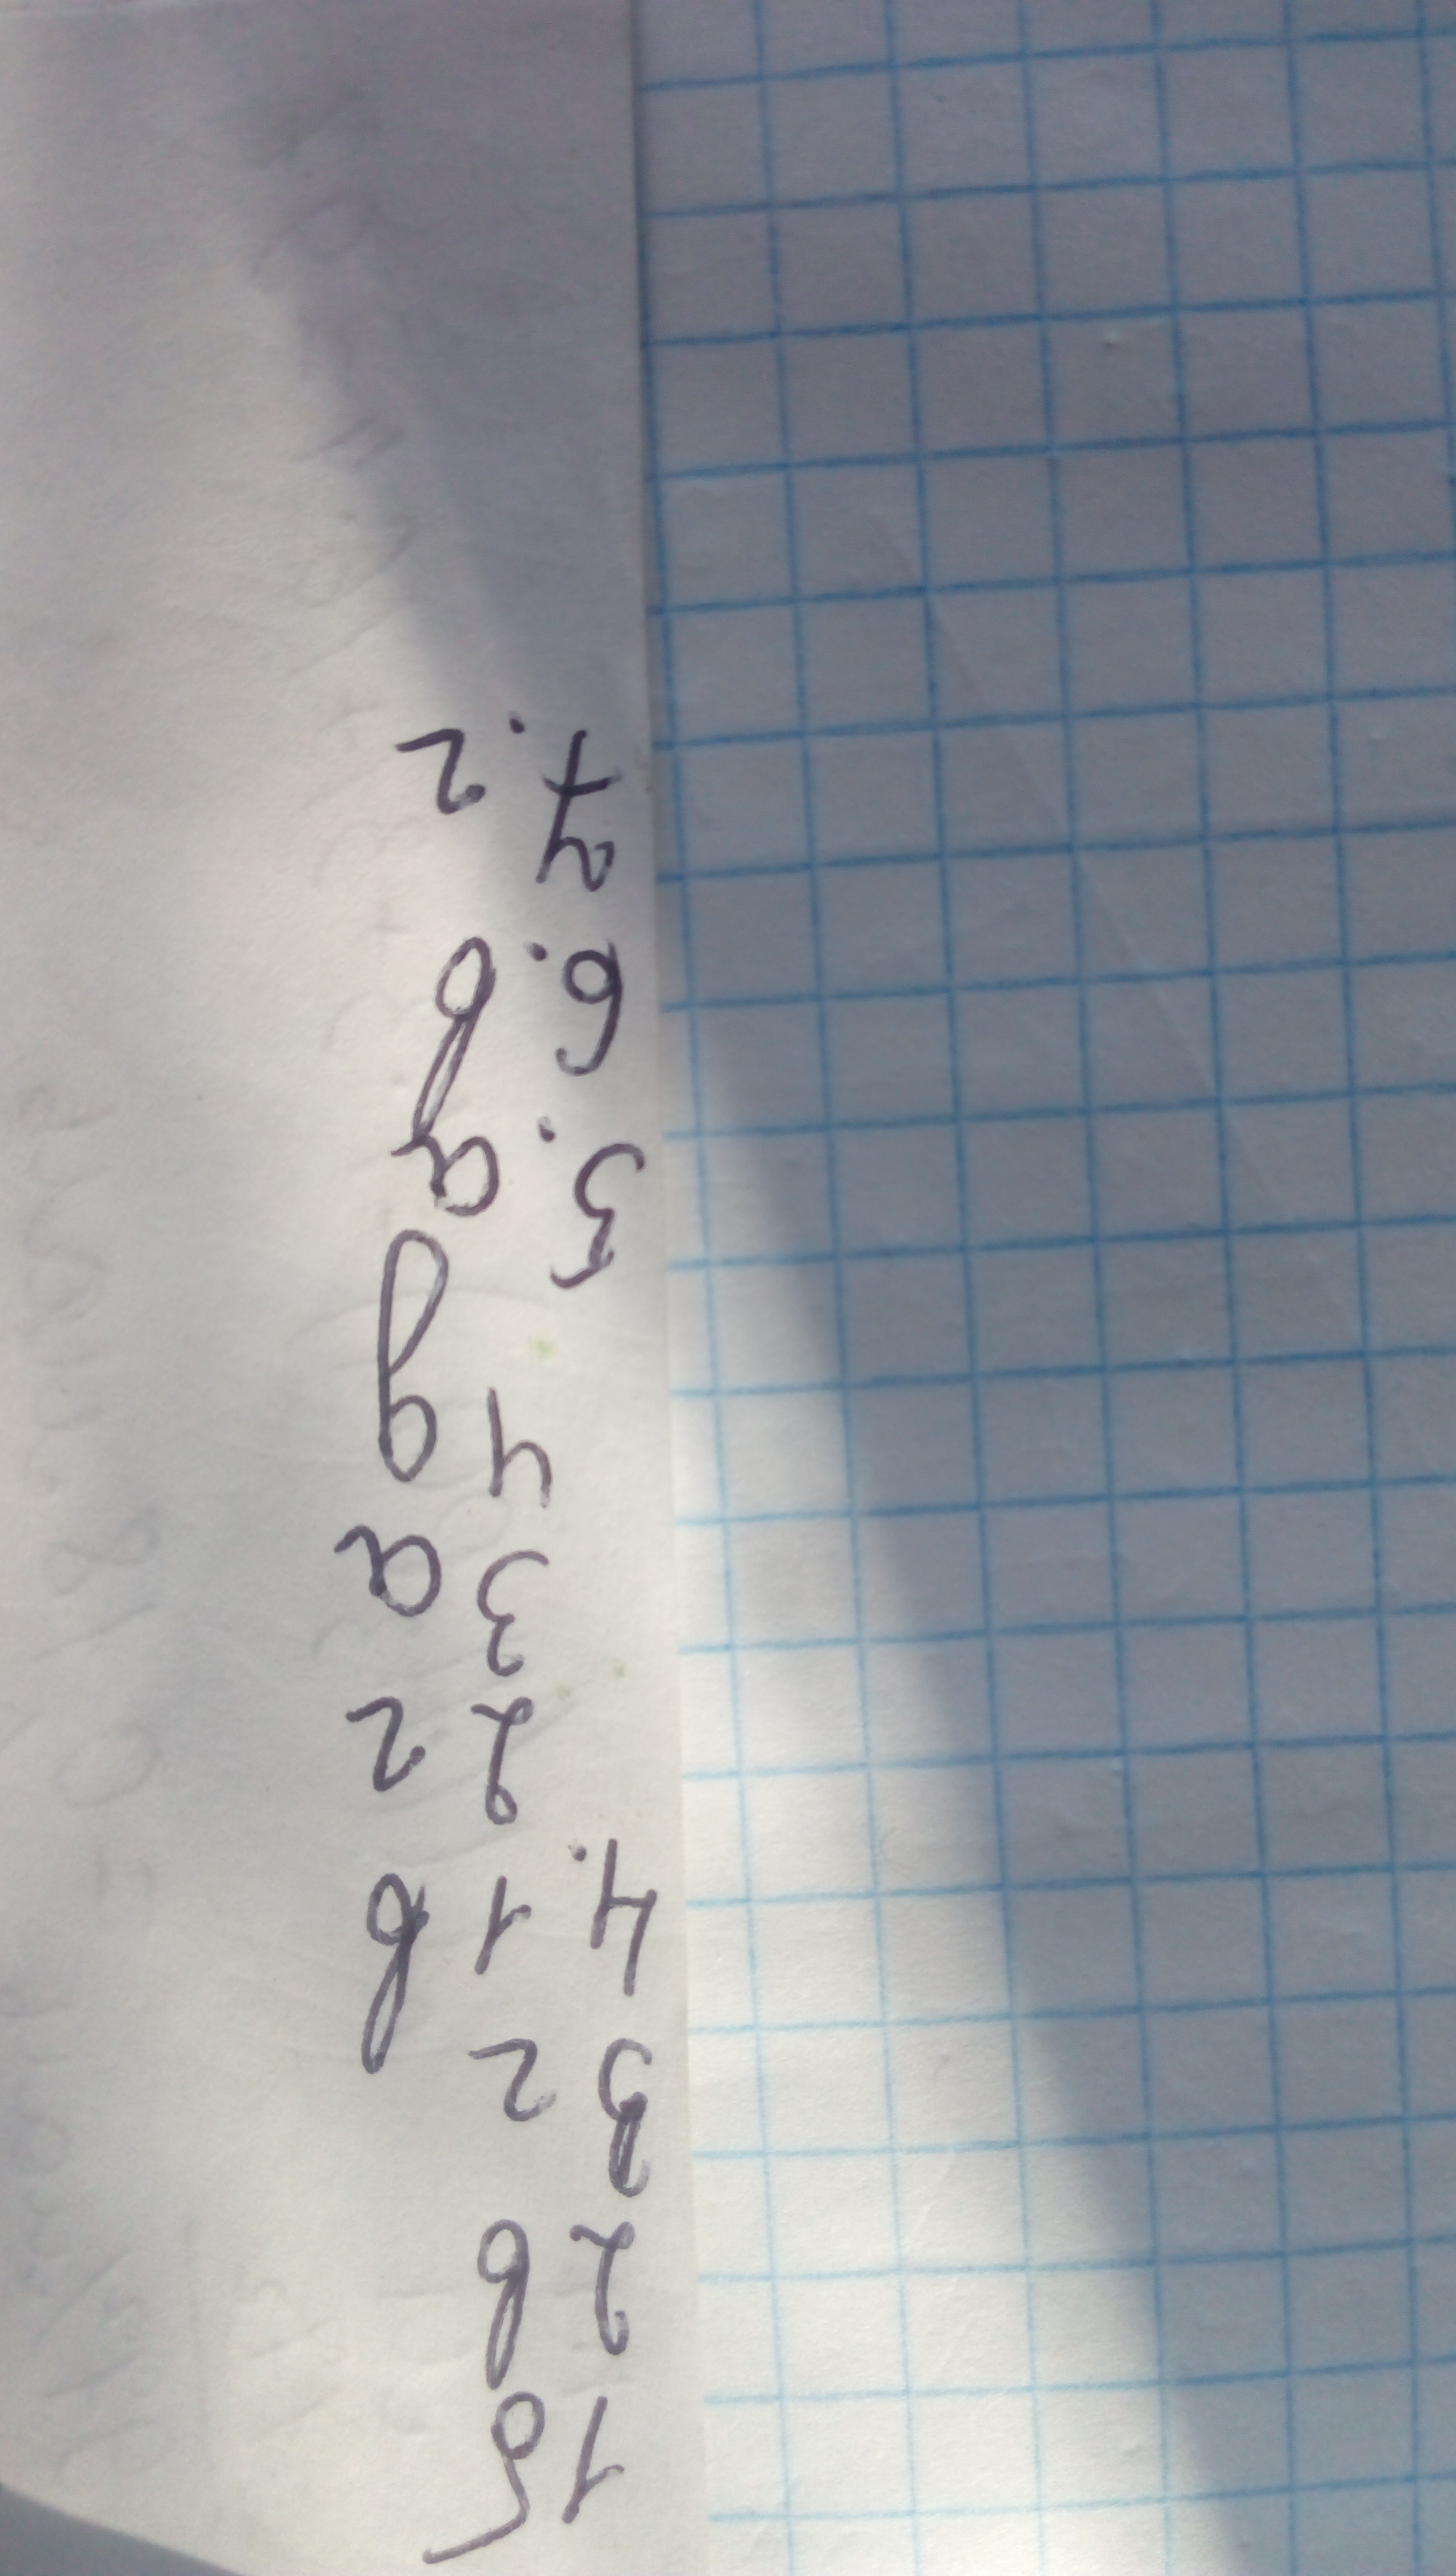 1 б
2 в
3 г
4. 1 в
2 г
3 а
4 д
5. а
6. в
7. г